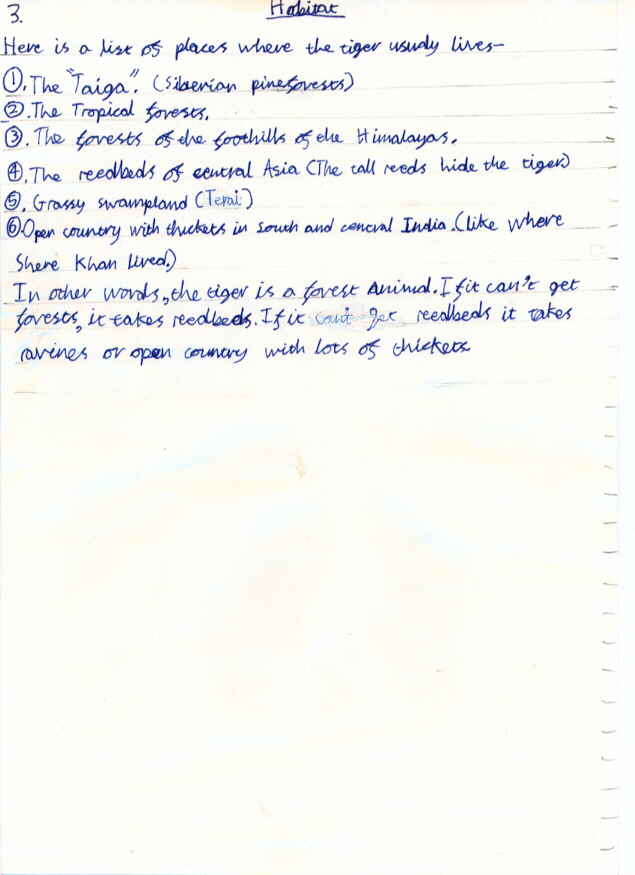 3.
Habitat
Here is a list of places where the tiger usually lives-
①. The "Taiga". (Siberian pineforests)
②. The Tropical forests.
③. The forests of the foothills of the Himalayas.
④. The reedbeds of central Asia (The tall reeds hide the tiger)
⑤. Grassy swampland (Terai)
⑥ Open country with thickets in south and central India. (like where
Shere Khan lived.)
In other words, the tiger is a forest animal. If it can't get
forests, it takes reedbeds. If it can't get reedbeds it takes
ravines or open country with lots of thickets